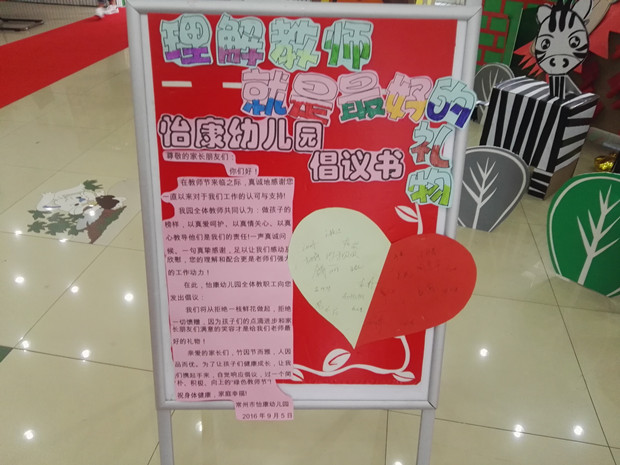 理解教师
就是最好的礼物
怡康幼儿园
倡议书
尊敬的家长朋友们：
你们好！
在教师节来临之际，真诚地感谢您
一直以来对于我们工作的认可与支持!
我园全体教师共同认为：做孩子的
榜样，以真爱呵护、以真情关心、以真
心教导他们是我们的责任!一声真诚问
候、一句真挚感谢，足以让我们感动
欣慰，您的理解和配合更是老师们强大
的工作动力！
在此，怡康幼儿园全体教职工向您
发出倡议：
我们可从拒绝一枝鲜花做起，拒绝
一切馈赠，因为孩子们的点滴进步和家
长朋友们满意的笑容才是给我们老师最
好的礼物！
亲爱的家长们，竹因节而雅，人因
品而优。为了让孩子们健康成长，让我
们携起手来，自觉响应倡议，过一个
朴、积极、向上的“绿色教师节”！
祝身体健康，家庭幸福!
常州市怡康幼儿园
2016年9月5日